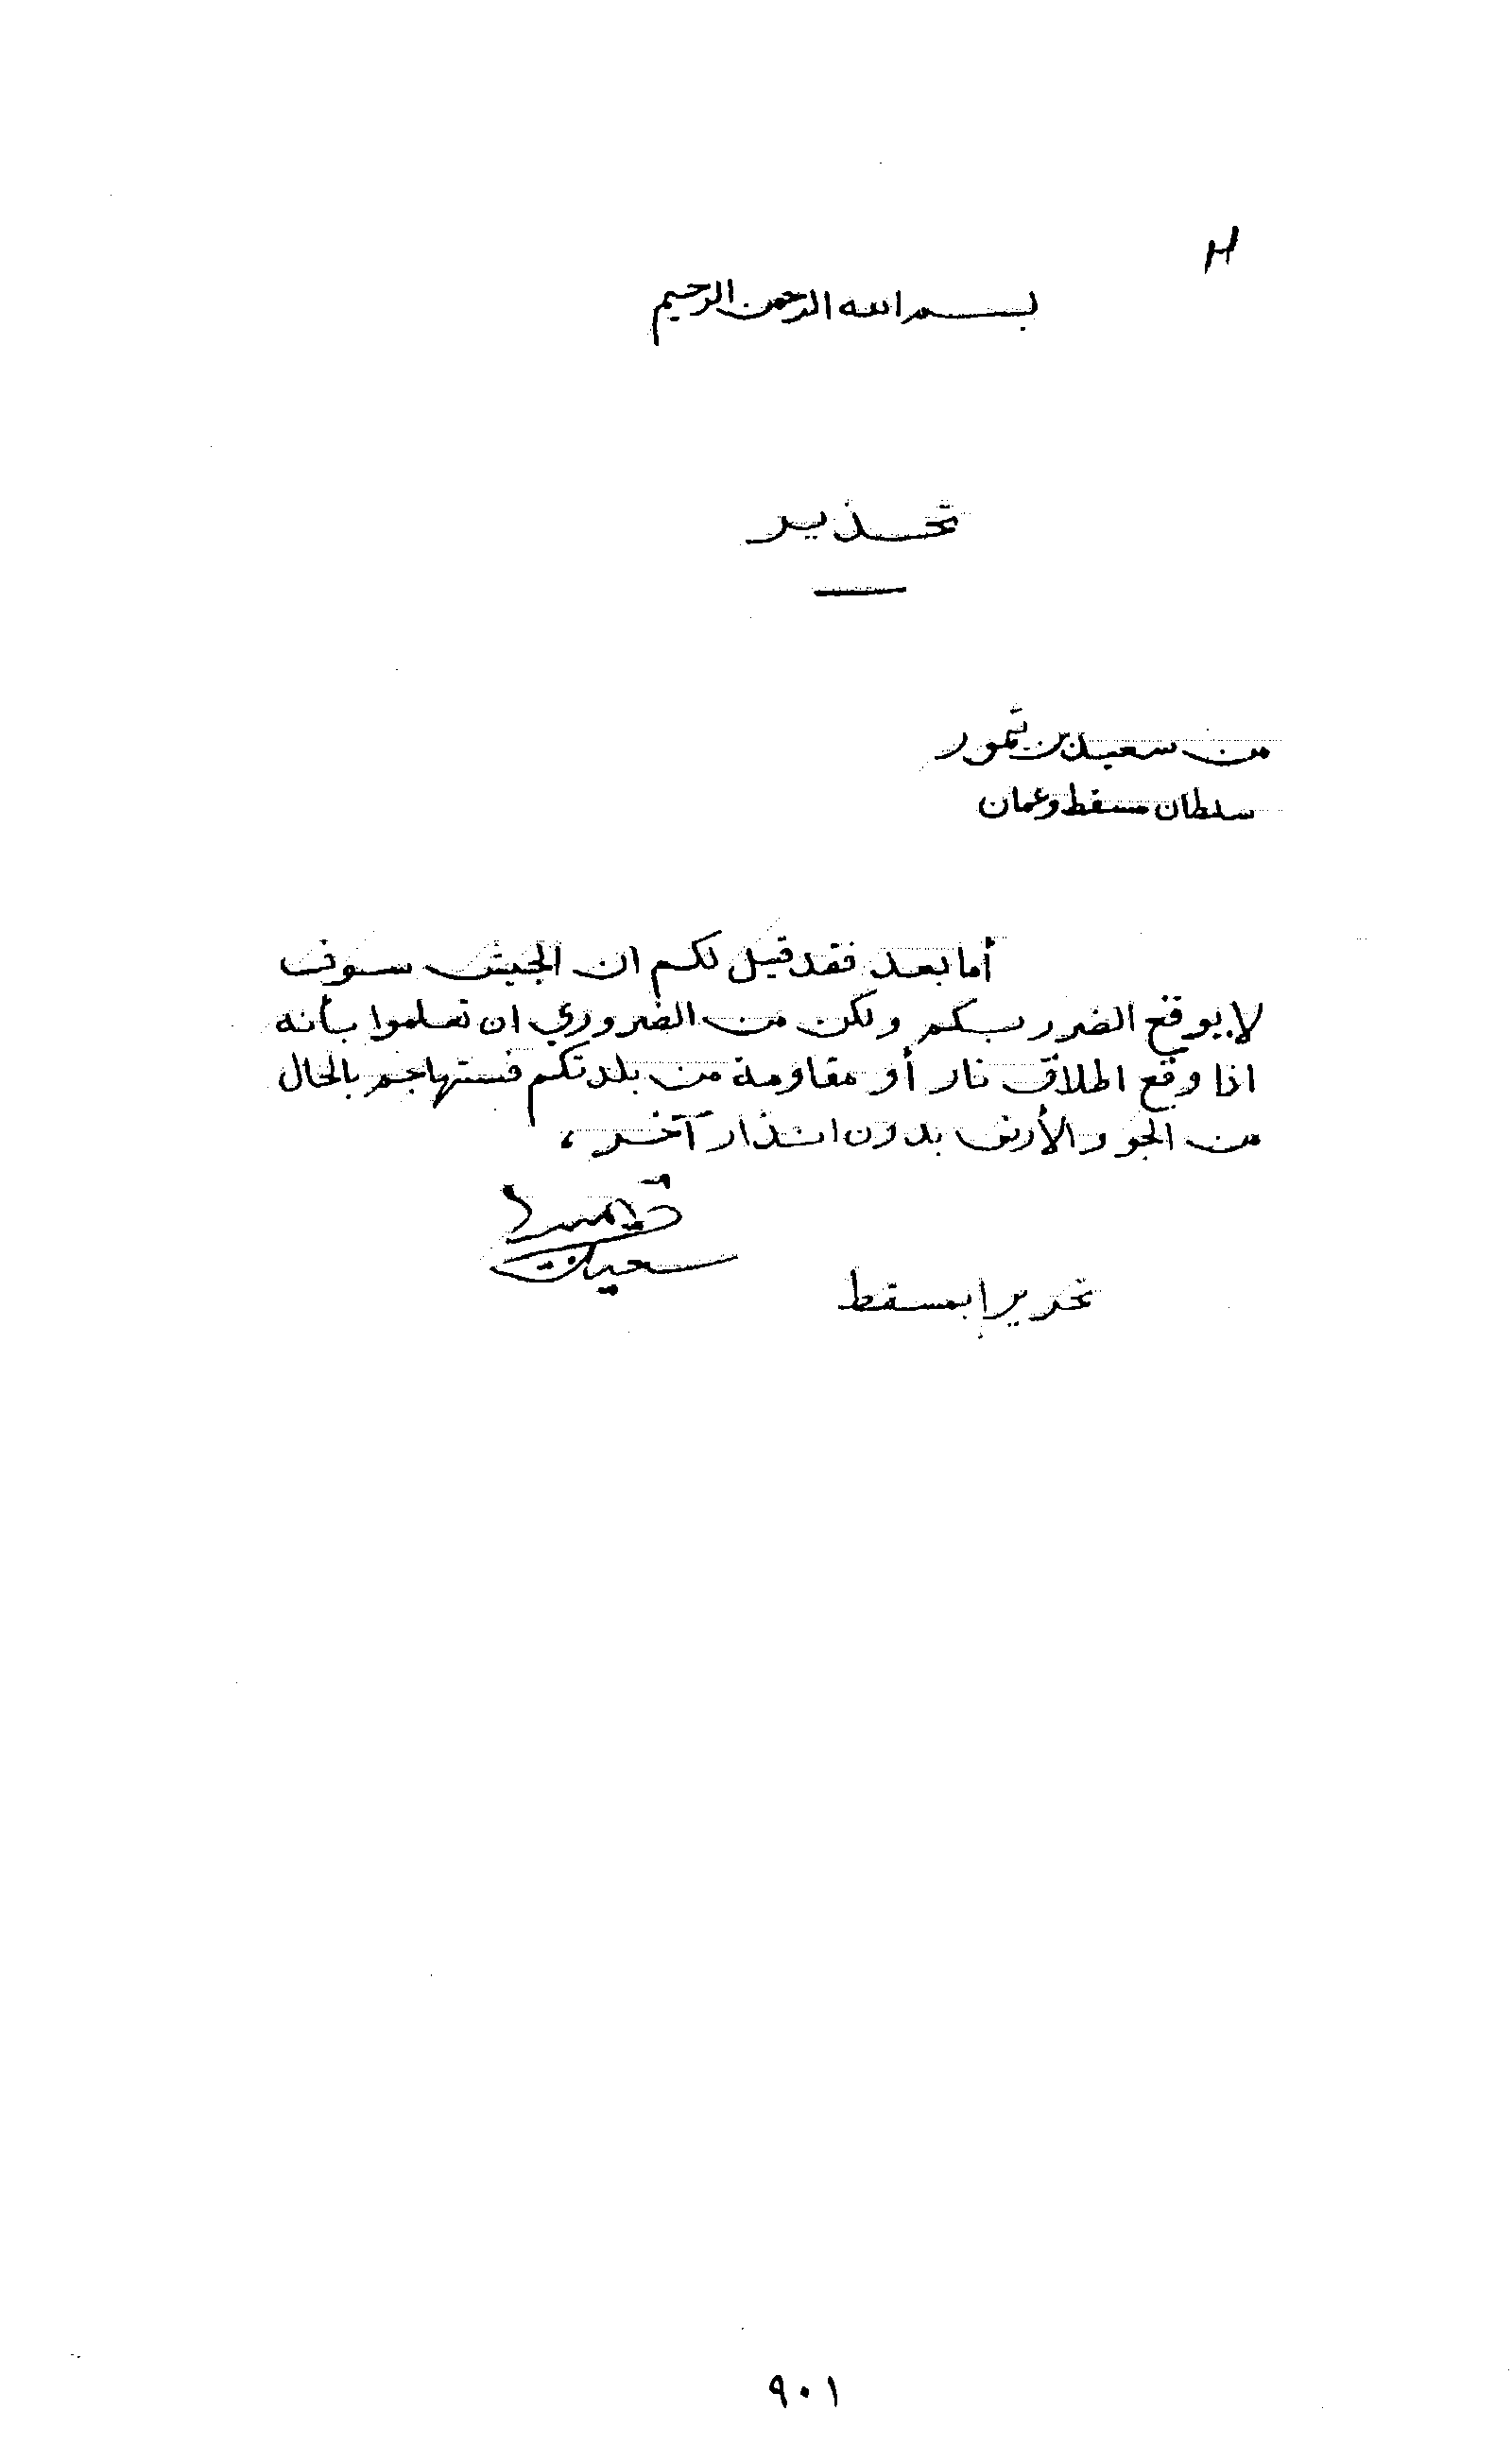 H
بسم الله الرحمن الرحيم
تحذير
من سعيد بن تيمور
سلطان مسقط وعمان
أما بعد فقد قيل لكم ان الجيش سوف
لا يوقع الضرر بكم ولكن من الضروري ان تعلموا بأنه
اذا وقع اطلاق نار أو مقاومة من بلدتكم فستهاجم بالحال
من الجو والأرض بدون انذار آخر ،
سعيد بن
تحريرا بمسقط
٩٠١